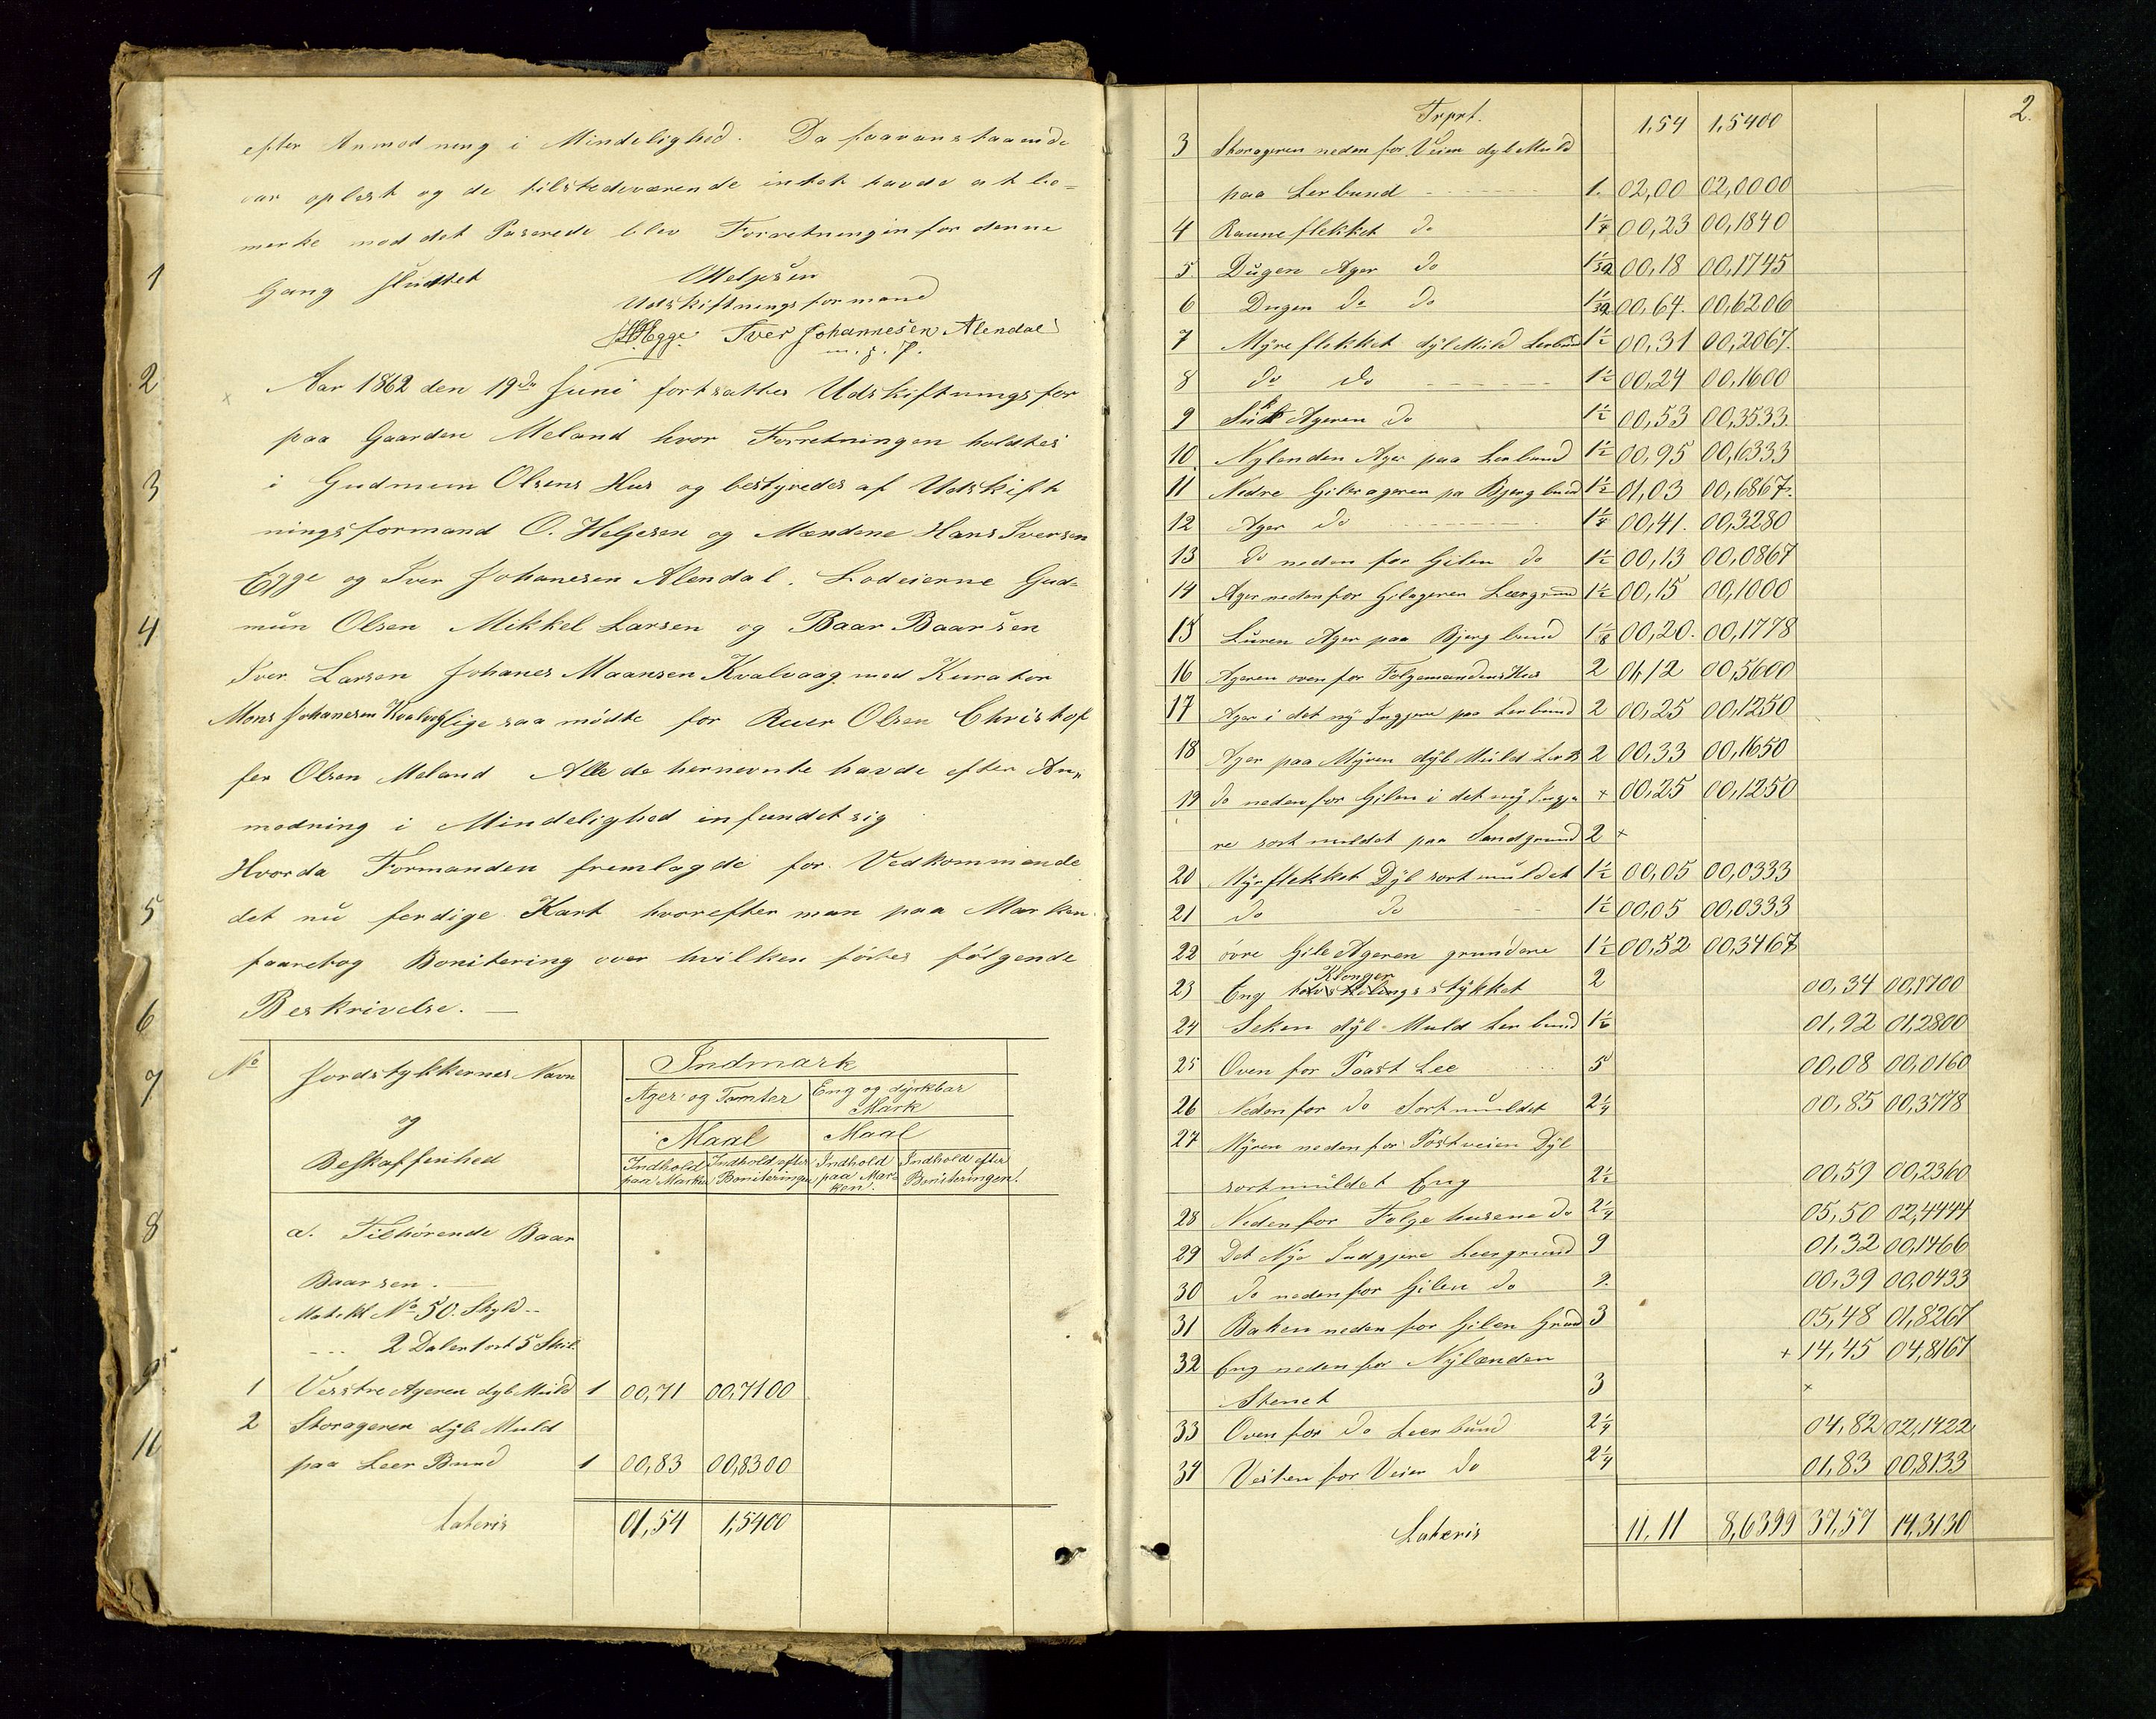 efter Anmodning i Mindelighed. Da foranstaaende
var oplest og de tilstedeværende intet havde at be=
merke mod det Paserede blev Forretningin for denne
Gang sluttet
OHelgesen
Udskiftningsformand
HIEgge. Iver Johannesen Alendal
Aar 1862 den 19de Juni fortsattes Udskiftningsfor
paa Gaarden Meland hvor Forretningen holdtes
i Gudmun Olsens Hus og bestyredes af Udskift
ningsformand O. Helgesen og Mændene Hans Iversen
Egge og Iver Johanesen Alendal. Lodeierne Gud=
mun Olsen Mikkel Larsen og Baar Baarsen
Iver Larsen Johanes Maansen Kvalvaag med Kurator
Mons Johanesen Kvalvaag ligesaa mødte for Reier Olsen Christof
fer Olsen Meland Alle de hernevnte havde efter An=
modning i Mindelighed infundet sig
Hvorda Formanden fremlagde for Vedkommende
det nu ferdige Kart hvorefter man paa Marken
foaretog Bonitering over hvilken førtes følgende
Beskrivelse. —
No Jordstykkernes Navn og Beskaffenhed
Indmark
Ager og Tomter Eng og dyrkbar Mark
Maal Maal
Indhold paa Marken Indhold efter Boniteringen Indhold paa Marken. Indhold efter Boniteringen.
a. Tilhørende Baar
Baarsen. —
Matrkl No 50. Skyld -
2 Daler 1 ort 5 Skil.
1 Vestre Ageren dyb Muld 1 00,71 00,7100
2 Storageren dyb Muld
paa Leer Bund 1 00,83 00,8300
Lateris 01,54 1,5400
2.
Trprt. 1,54 1,5400
3 Storageren neden for Veien dyb Muld
paa Lerbund 1. 02,00 02,0000
4 Rauneflekket do 1¼ 00,23 00,1840
5. Dugen Ager do 00,18 00,1745
6 Dugen do do 00,64. 00,6206
7 Myreflekket dyb Muld Lerbund 1½ 00,31 00,2067.
8 do do 1½ 00,24 00,1600
9 Ageren do 1½ 00,53 00,3533.
10 Nylenden Ager paa Lerbund 1½ 00,95 00,6333
11 Nedre Gileageren pa Bjerg bund 1½ 01,03 00,6867.
12 Ager do 1¼ 00,41. 00,3280
13 do neden for Gilen do 1½ 00,13 00,0867
14 Ager nedenfor Gilageren Leergrund 1½ 00,15 00,1000
15 Luren Ager paa Bjerg bund 1⅛ 00,20. 00,1778
16 Ageren oven for Folgemandens Hus 2 01,12 00,5600
17 Ager i det ny Ingjere paa Lerbund 2 00,25 00,1250
18 Ager paa Myren dyb Muld Lerb 2 00,33 00,1650
19 do nedenfor Gilen i det ny Inggje + 00,25 00,1250
re sort muldet paa Sandgrund 2 +
20 Myrflekket Dyb sort muldet 1½ 00,05 00,0333
21 do do 1½ 00,05 00,0333
22 øvre Gile Ageren grundere 1½ 00,52 00,3467
23 Eng Klonger stykket 2 00,34 00,1700
24 Seken dyb Muld Ler bund 1½ 01,92 01,2800
25 Oven for Paast Lee 5 00,08 00,0160
26 Nedenfor do Sort muldet 2¼ 00,85 00,3778
27 Myren nedenfor Postveien Dyb
sortmuldet Eng 2½ 00,59 00,2360
28 Nedenfor Folge husene do 2¼ 05,50 02,4444
29 Det Nye Indgjere Leergrund 9 01,32 00,1466
30 do nedenfor Gilen do 9. 00,39 00,0433
31 Baken neden for Gilen Grund 3 05,48 01,8267
32 Eng neden for Nylænden + 14,45 04,8167
Stenet 3 ×
33 Oven for do Leerbund 2¼ 04,82 02,1422
34 Vesten for Veien do 2¼ 01,83 00,8133
Lateris 11,11 8,6399 37,57 14,3130
1
2
3
4
5
6
7
8
9